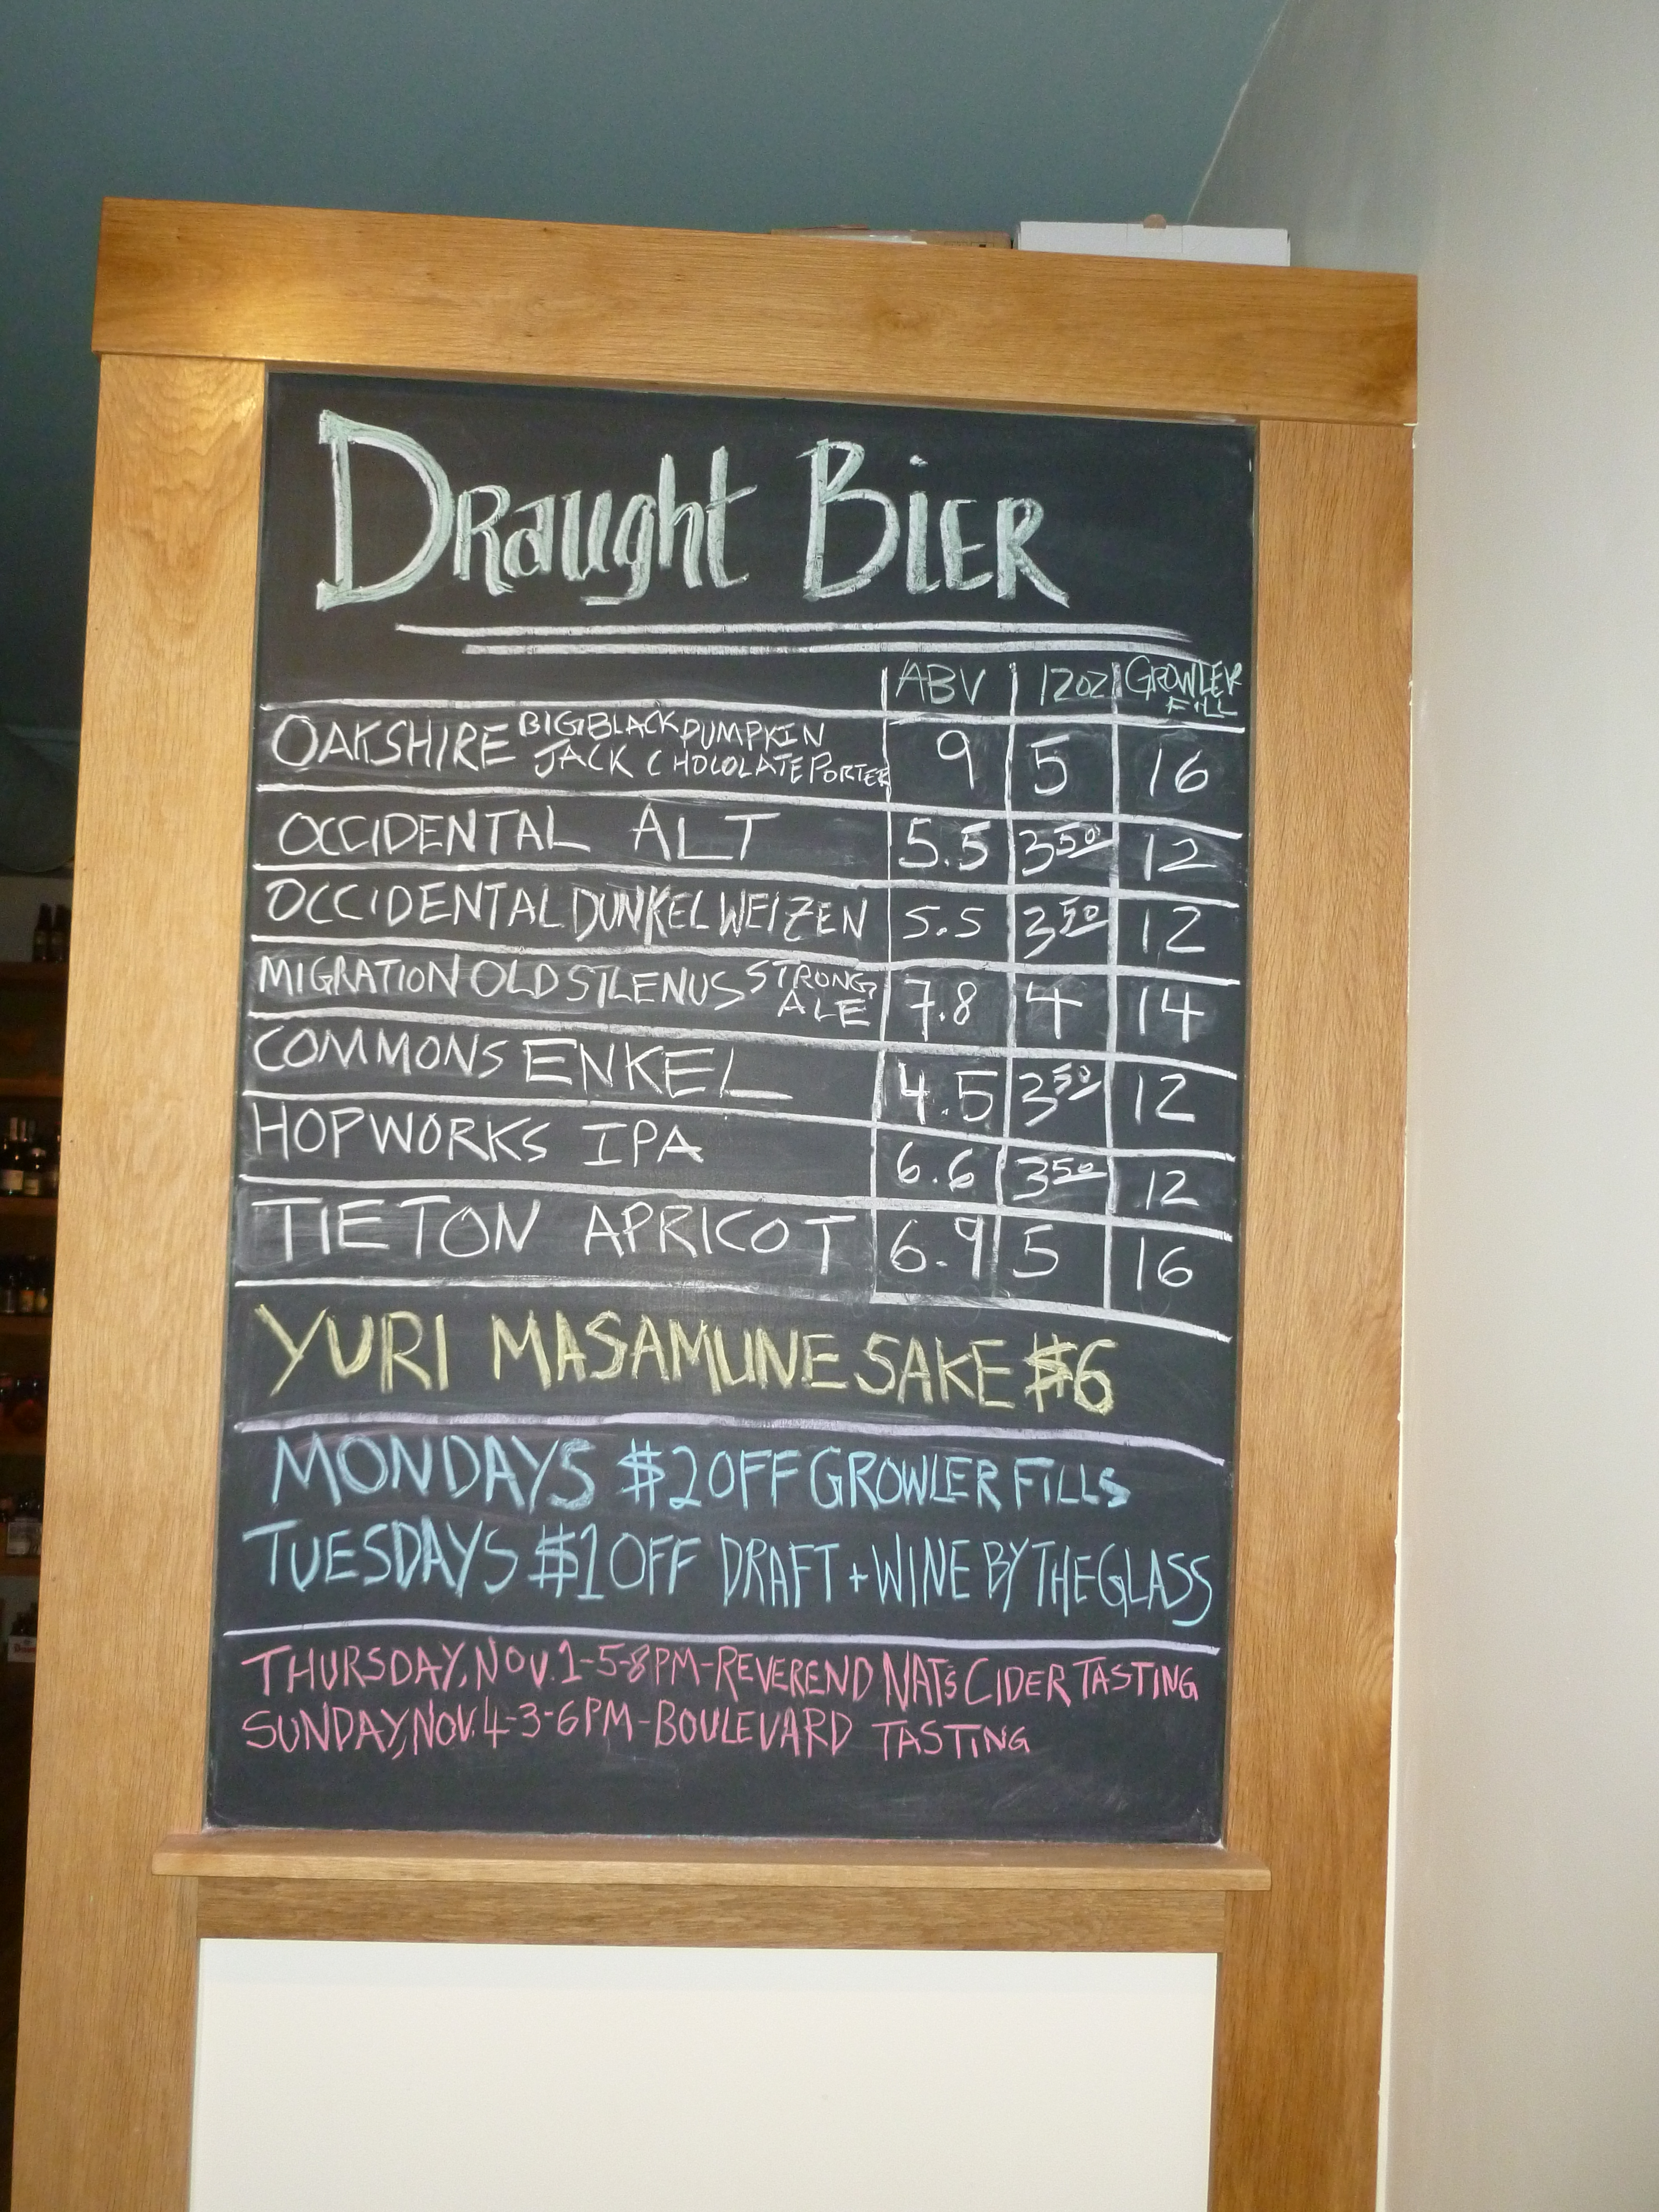 Draught Bier
ABV 12oz GROWLER FILL
OAKSHIRE BIG BLACK PUMPKIN
JACK CHOLOLATE PORTER 9 5 16
OCCIDENTAL ALT 5.5 3 50 12
OCCIDENTAL DUNKELWEIZEN 5.5 3 50 12
MIGRATION OLD SILENUS STRONG ALE 7.8 4 14
COMMONS ENKEL 4.5 3 50 12
HOPWORKS IPA 6.6 3 50 12
TIETON APRICOT 6.9 5 16
YURI MASAMUNE SAKE $6
MONDAYS $2 OFF GROWLER FILLS
TUESDAYS $1 OFF DRAFT + WINE BY THE GLASS
THURSDAY, NOV. 1-5-8PM-REVEREND NAT'S CIDER TASTING
SUNDAY, NOV. 4-3-6PM-BOULEVARD TASTING